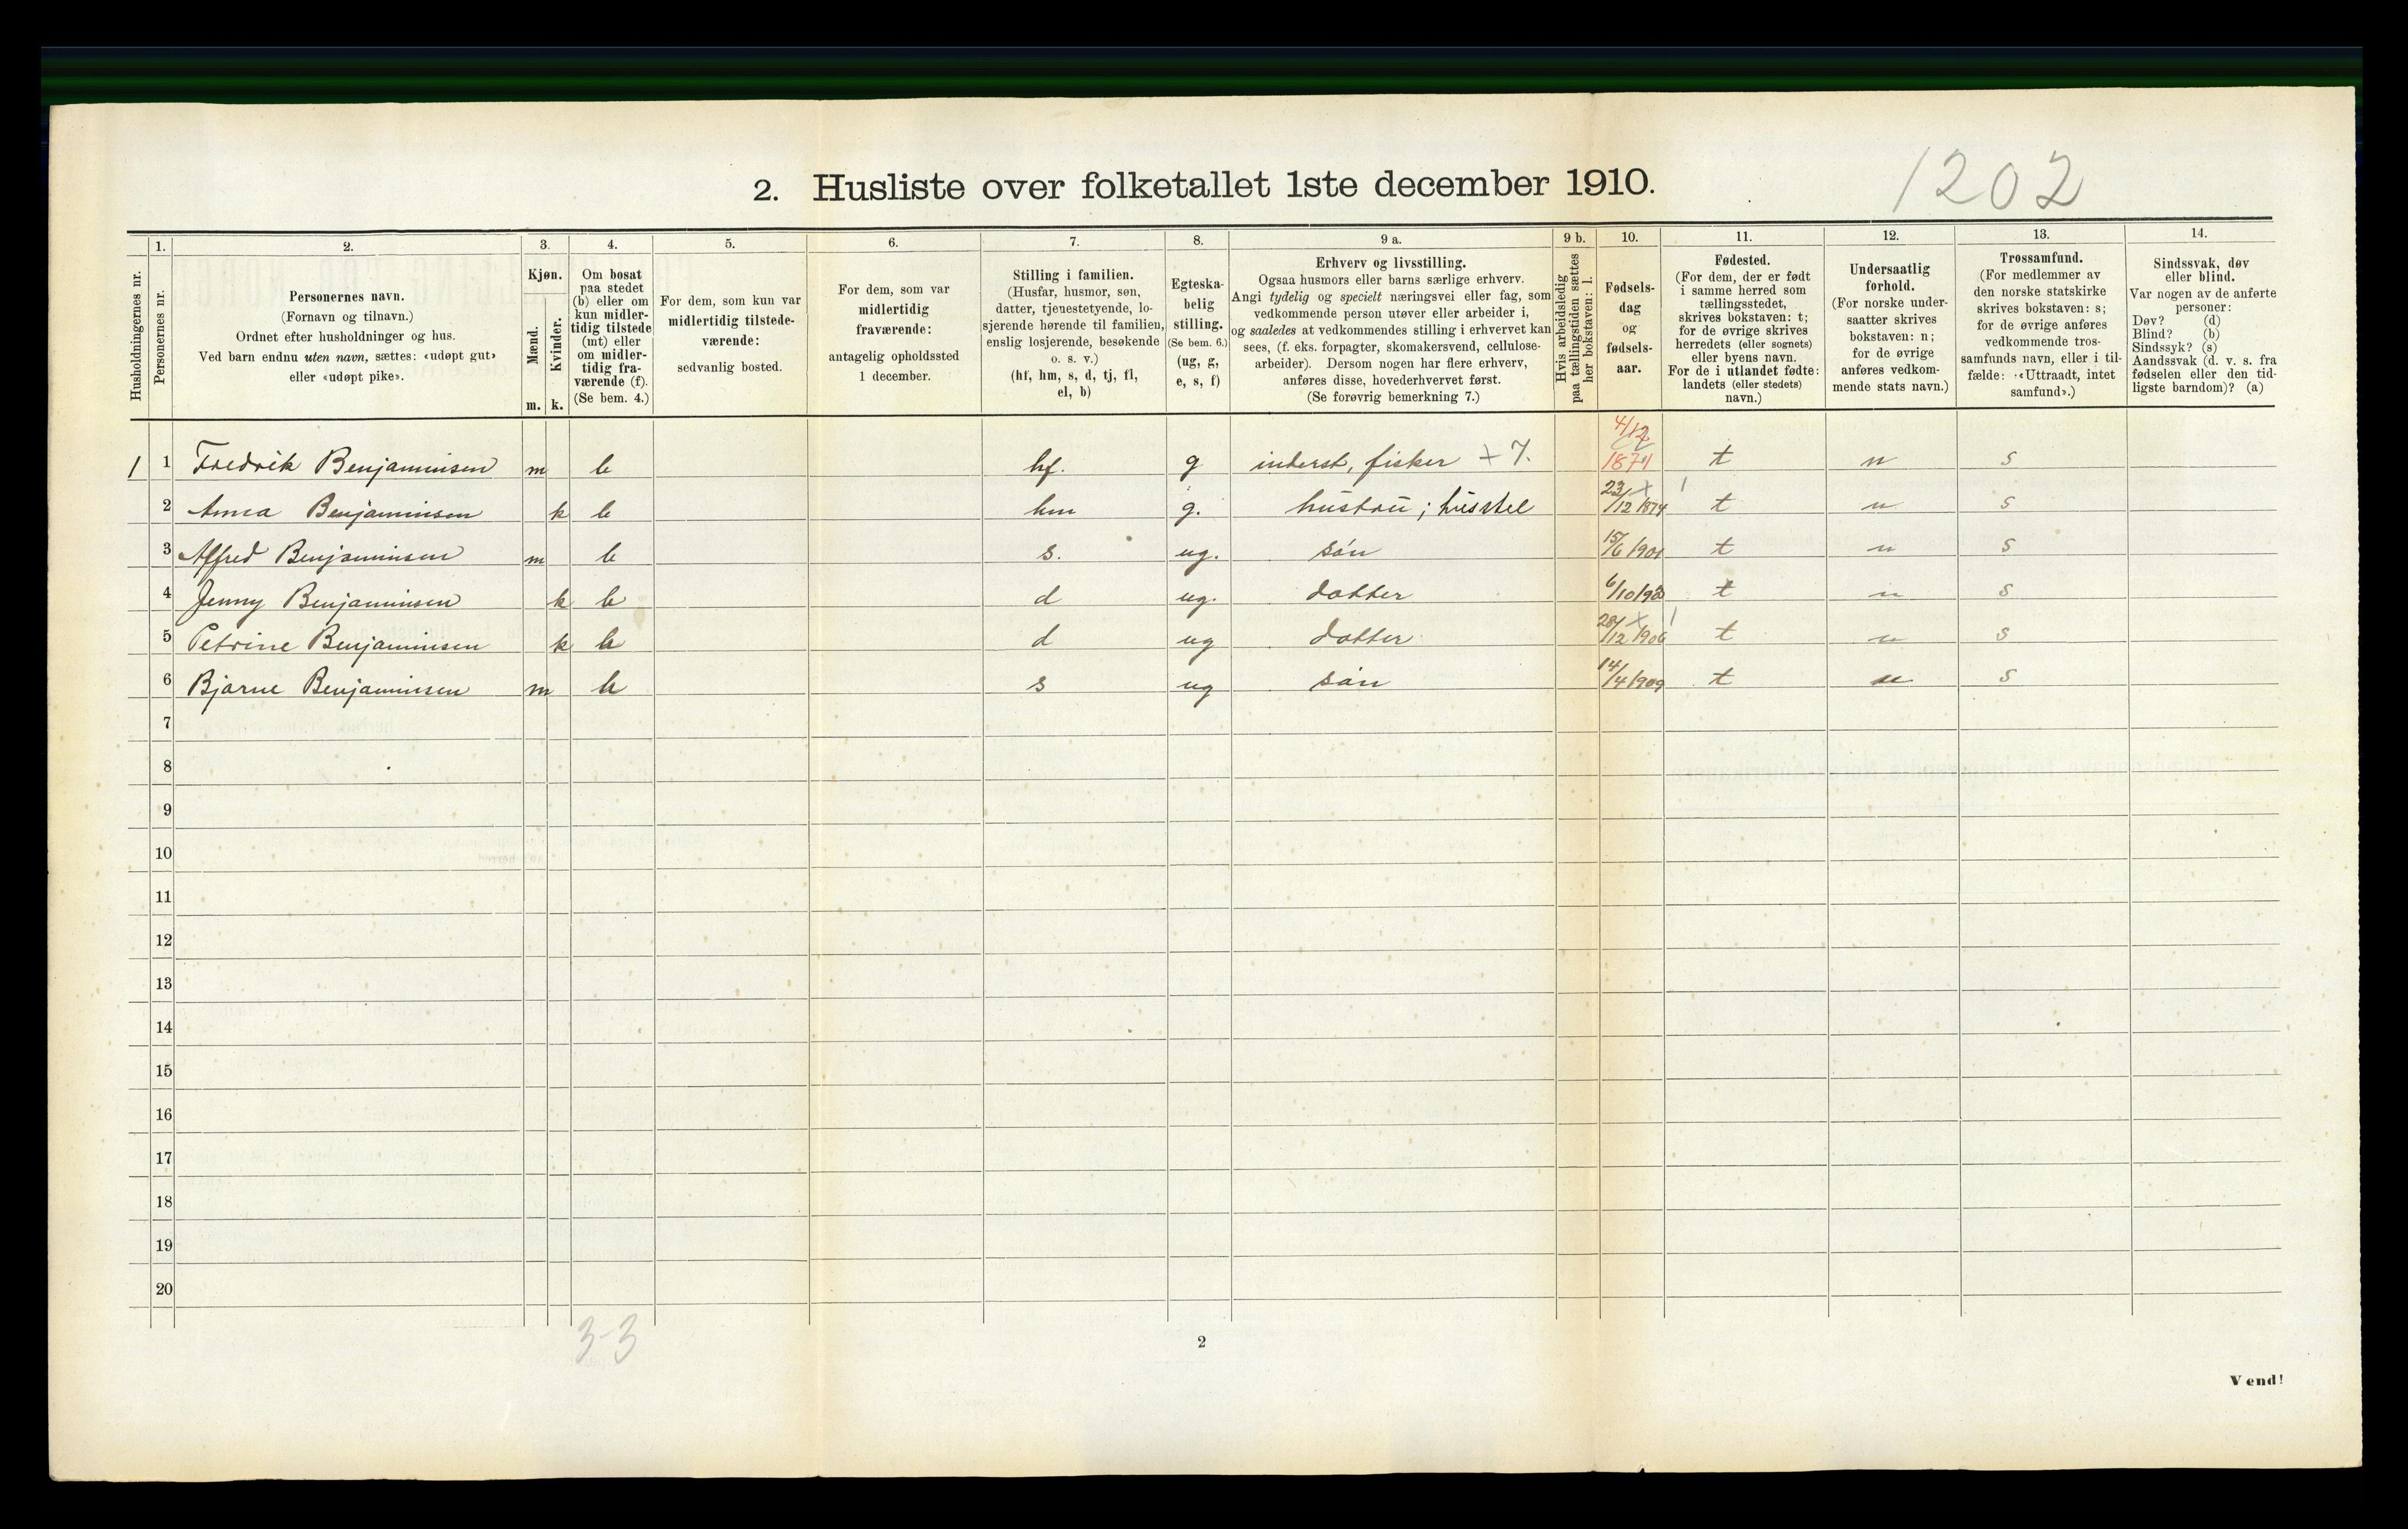 1202
2. Husliste over folketallet 1ste december 1910.
Husholdningernes nr.
1.
Personernes nr.
2.
Personernes navn.
(Fornavn og tilnavn.)
Ordnet efter husholdninger og hus.
Ved barn endnu uten navn, sættes: «udøpt gut»
eller «udøpt pike».
3.
Kjøn.
Mænd.
Kvinder.
m. k.
4.
Om bosat
paa stedet
(b) eller om
kun midler-
tidig tilstede
(mt) eller
om midler-
tidig fra-
værende (f).
(Se bem. 4.)
5.
For dem, som kun var
midlertidig tilstede-
værende:
sedvanlig bosted.
6.
For dem, som var
midlertidig
fraværende:
antagelig opholdssted
1 december.
7.
Stilling i familien.
(Husfar, husmor, søn,
datter, tjenestetyende, lo-
sjerende hørende til familien,
enslig losjerende, besøkende
o. s. v.)
(hf, hm, s, d, tj, fl,
el, b)
8.
Egteska-
belig
stilling.
(Se bem. 6.)
(ug, g,
e, s, f)
9 a.
Erhverv og livsstilling.
Ogsaa husmors eller barns særlige erhverv.
Angi tydelig og specielt næringsvei eller fag, som
vedkommende person utøver eller arbeider i,
og saaledes at vedkommendes stilling i erhvervet kan
sees, (f. eks. forpagter, skomakersvend, cellulose-
arbeider). Dersom nogen har flere erhverv,
anføres disse, hovederhvervet først.
(Se forøvrig bemerkning 7.)
9 b.
Hvis arbeidsledig
paa tællingstiden sættes
her bokstaven: l.
10.
Fødsels-
dag
og
fødsels-
aar.
11.
Fødested.
(For dem, der er født
i samme herred som
tællingsstedet,
skrives bokstaven: t;
for de øvrige skrives
herredets (eller sognets)
eller byens navn.
For de i utlandet fødte:
landets (eller stedets)
navn.)
12.
Undersaatlig
forhold.
(For norske under-
saatter skrives
bokstaven: n;
for de øvrige
anføres vedkom-
mende stats navn.)
13.
Trossamfund.
(For medlemmer av
den norske statskirke
skrives bokstaven: s;
for de øvrige anføres
vedkommende tros-
samfunds navn, eller i til-
fælde: «Uttraadt, intet
samfund».)
14.
Sindssvak, døv
eller blind.
Var nogen av de anførte
personer:
Døv? (d)
Blind? (b)
Sindssyk? (s)
Aandssvak (d. v. s. fra
fødselen eller den tid-
ligste barndom)? (a)
1 1 Fredrik Benjaminsen m b hf. g inderst, fisker + 7. 4/12 1871 t n s
2 Anna Benjaminsen k b hm g. hustru; husstel 23/12 1874 t n s
3 Alfred Benjaminsen m b s. ug. søn 15/6 1901 t n s
4 Jenny Benjaminsen k b d ug. datter 6/10 1903 t n s
5 Petrine Benjaminsen k b d ug datter 28/12 1906 t n s
6 Bjarne Benjaminsen m b s ug søn 14/4 1909 t n s
7
8
9
10
11
12
13
14
15
16
17
18
19
20
3-3
2
Vend!